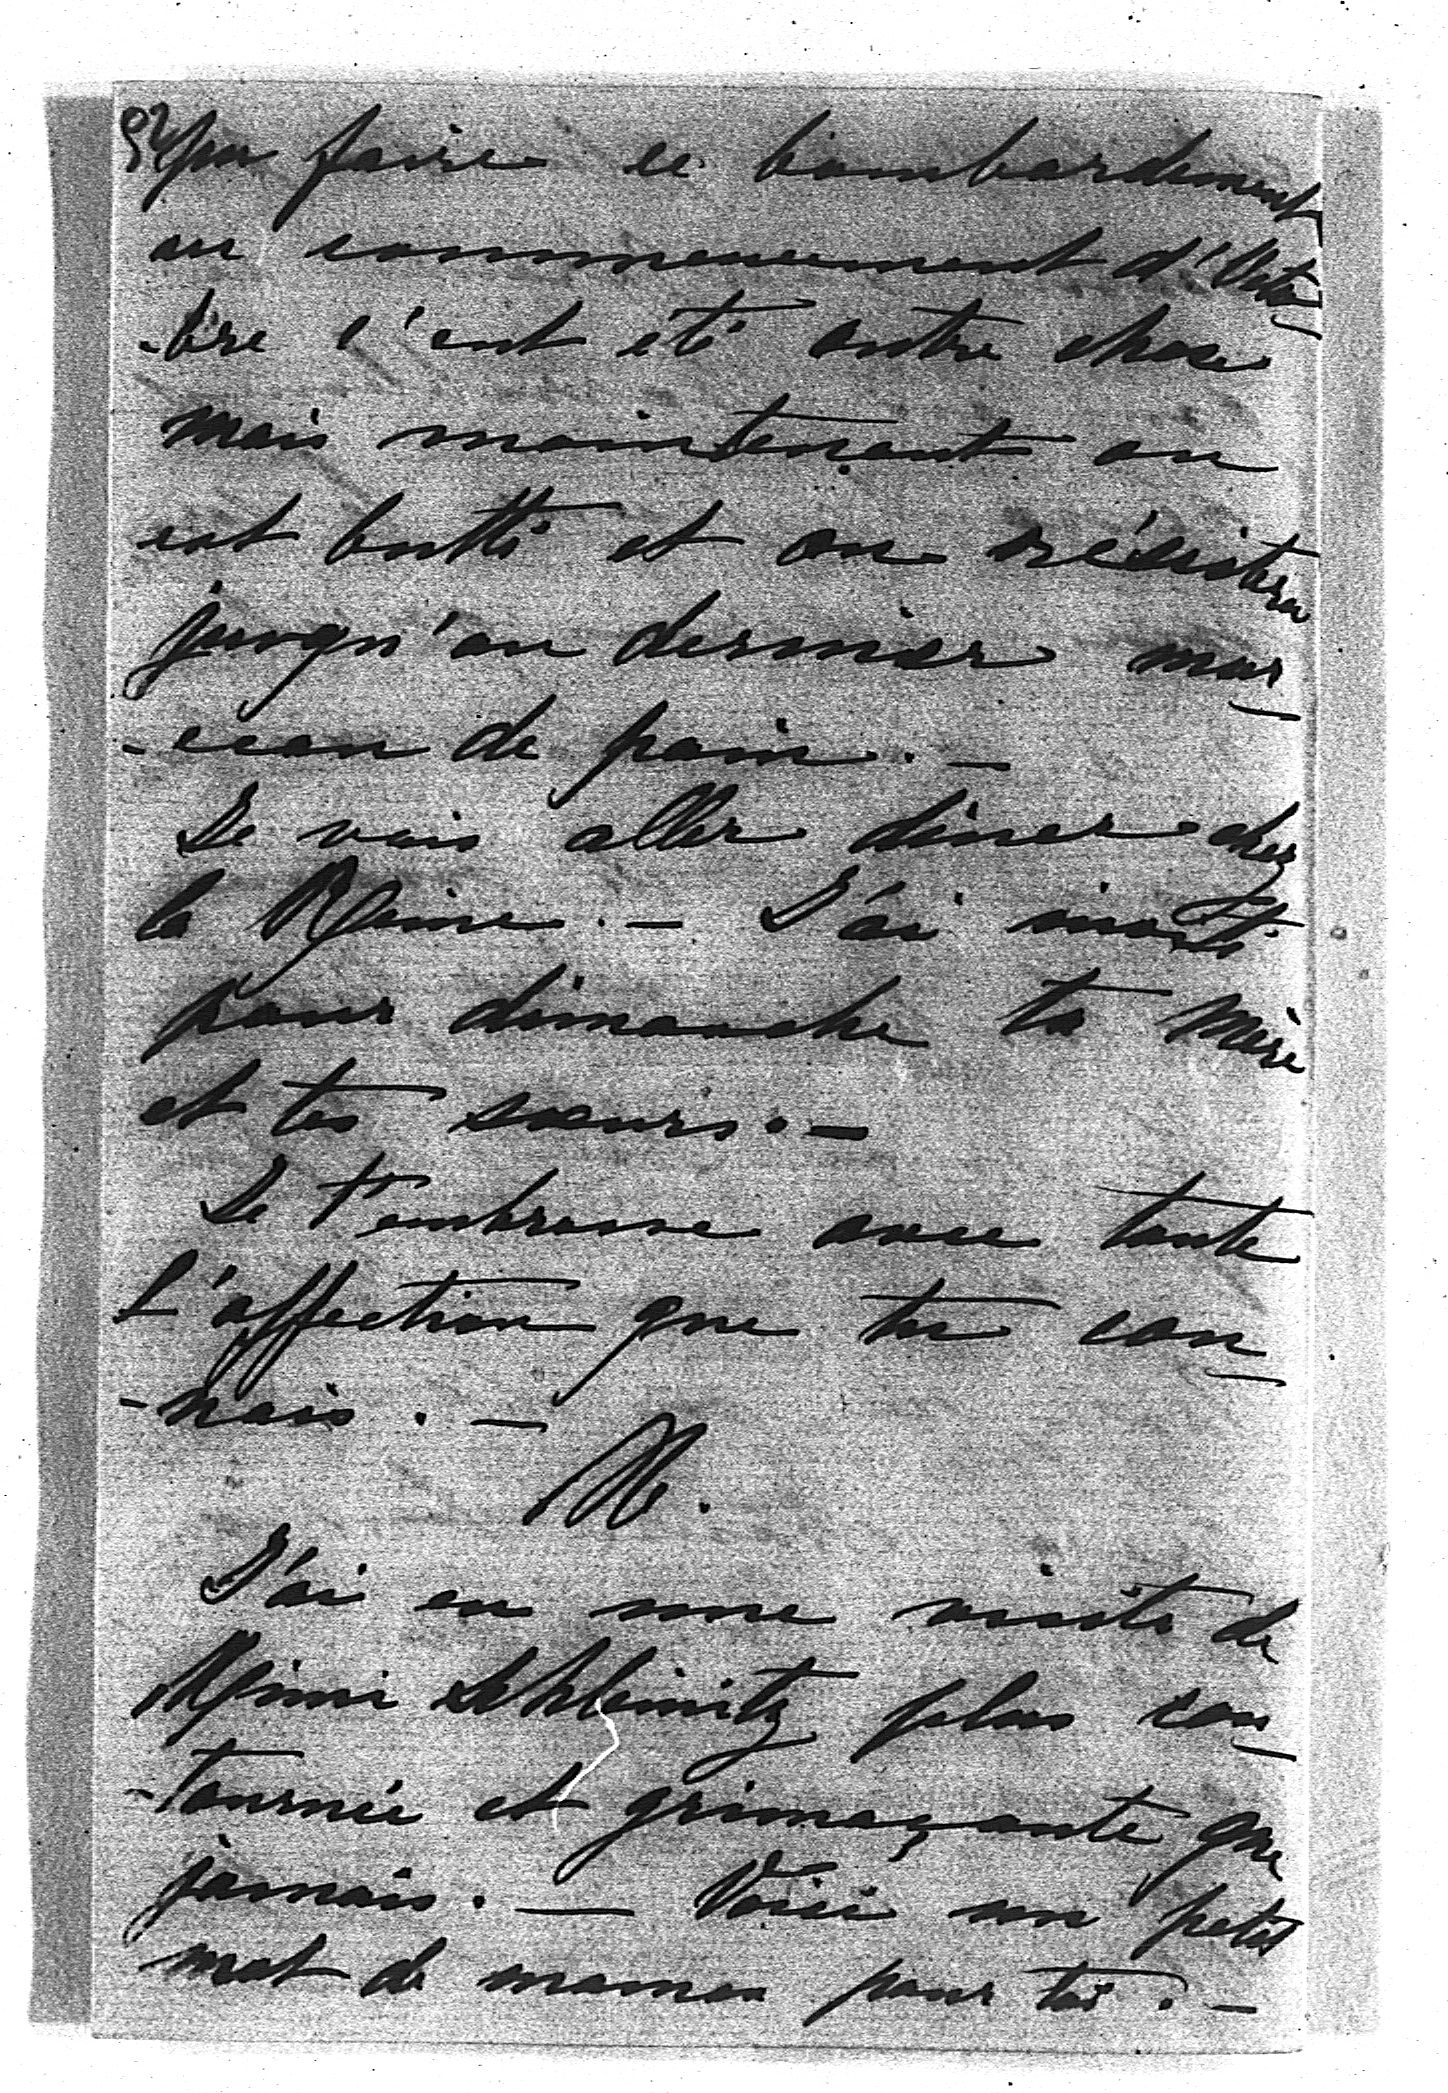 pu faire ce bombardement
au commencement d'Octo
-bre c'eut été autre chose
mais maintenant on
est butté et on résistera
jusqu'au dernier mor
-ceau de pain. —
Je vais aller diner chez
la Reine. — J'ai invité
pour dimanche ta mère
et tes sœurs. —
Je t'embrasse avec toute
l'affection que tu con
-nais. —
M.
J'ai eu une visite de
Mimi Schleinitz plus con
-tournée et grimaçante que
jamais. — Voici un petit
mot de maman pour toi. —